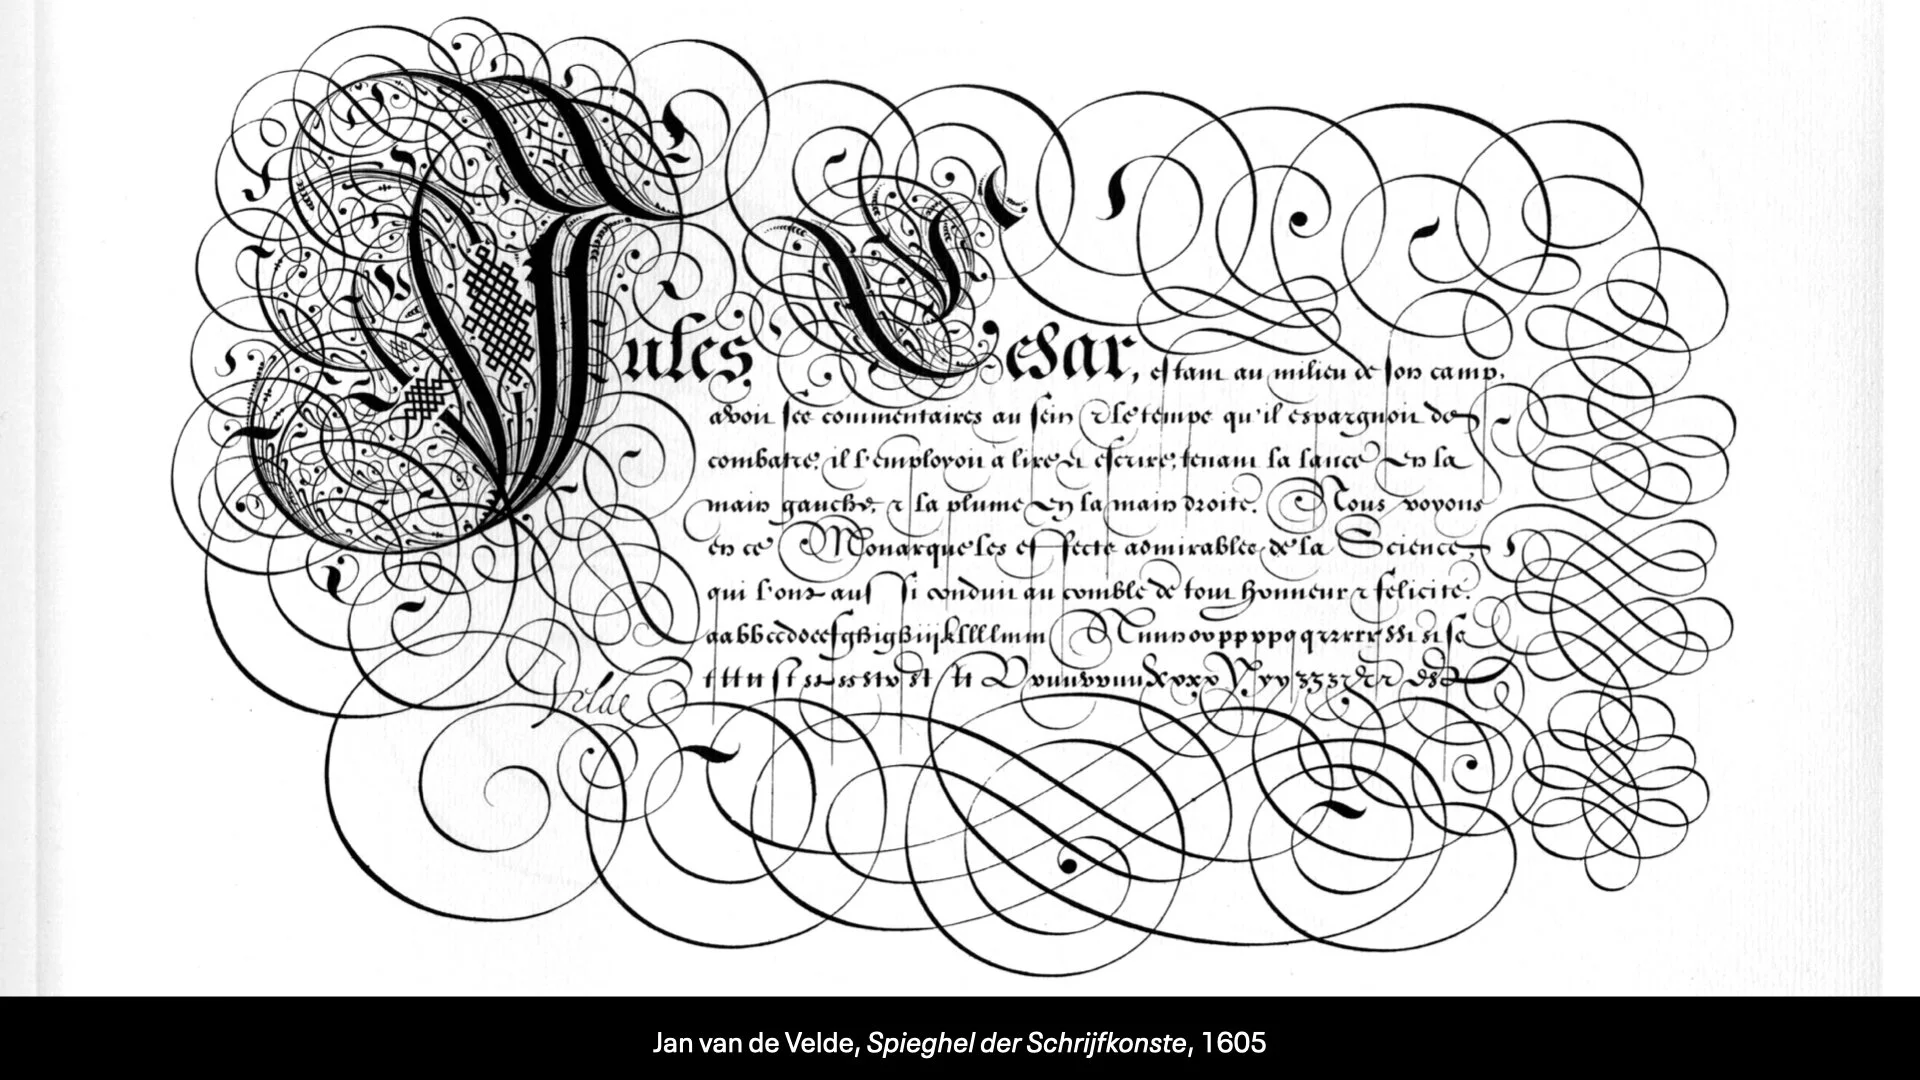 Jules Cesar, estant au milieu de son camp,
avoit ses commentaires au sein & le temps qu'il espargnoit de
combatre, il l'employoit a lire & escrire, tenant la lance en la
main gauche, & la plume en la main droite. Nous voyons
en ce Monarque les effects admirables de la Science,
qui l'ont aussi conduit au comble de tout honneur & felicité.
Velde
Jan van de Velde, Spieghel der Schrijfkonste, 1605